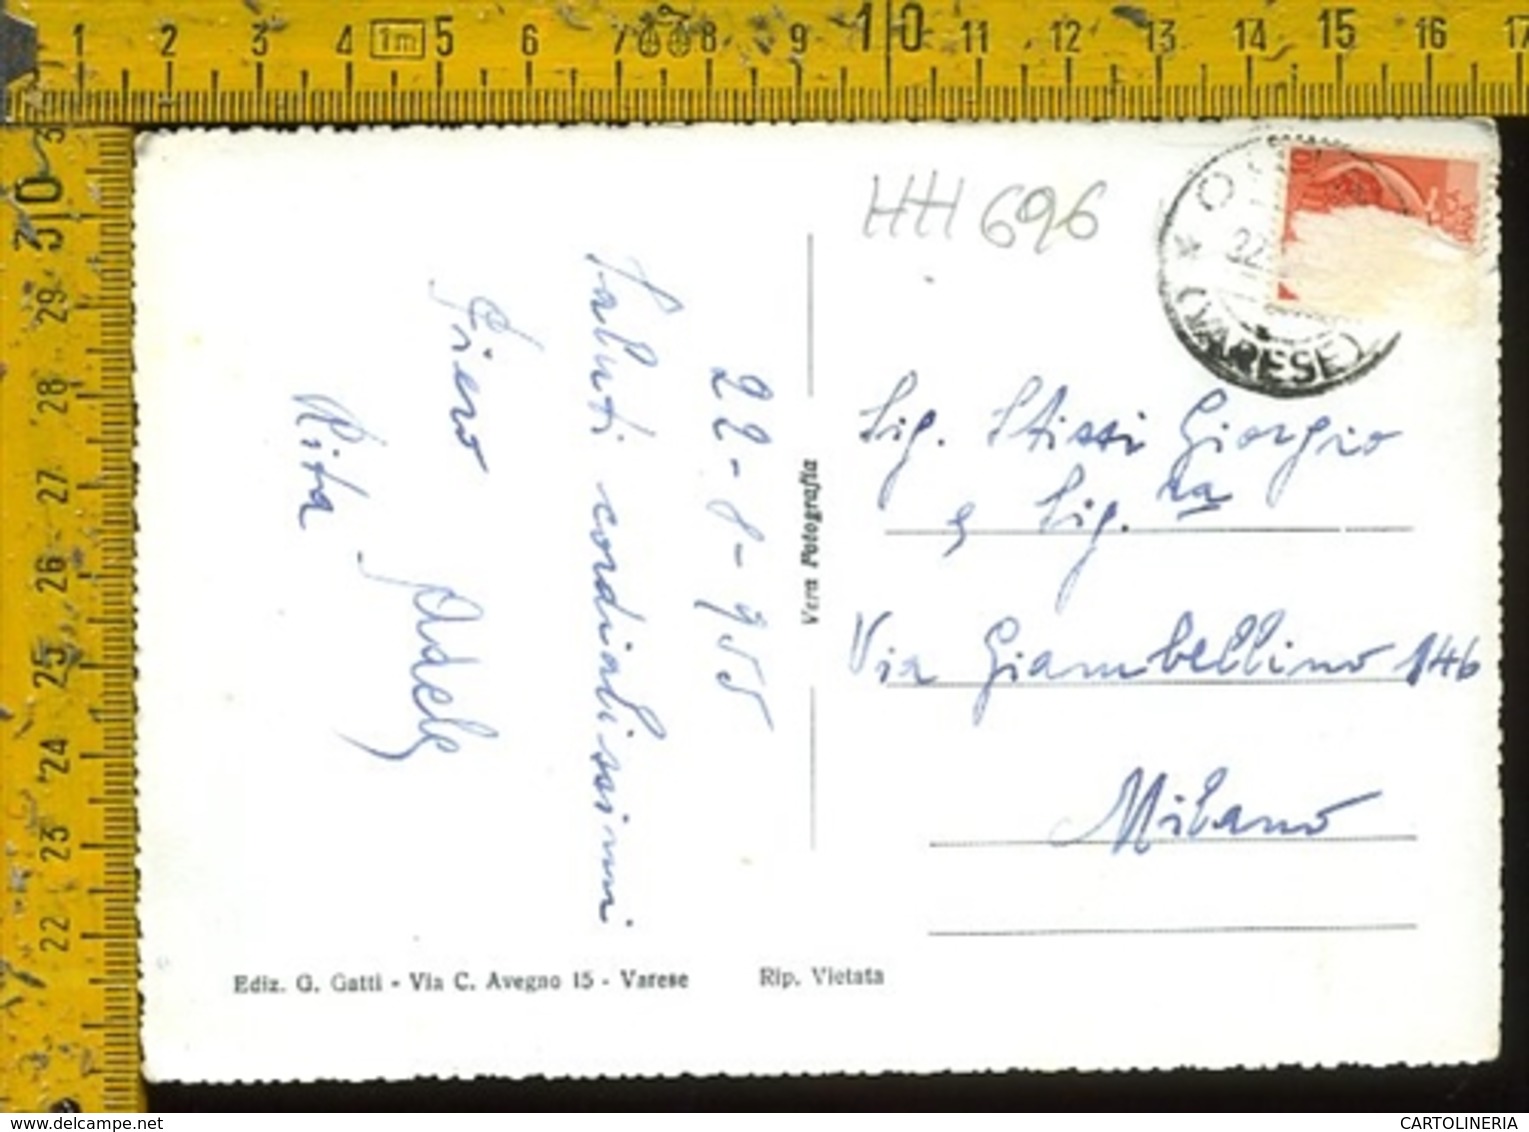 1 2 3 4 1m 5 6 7 8 9 10 11 12 13 14 15 16 17
30 29 28 27 26 25 24 23 22
HH 696
(VARESE)
22-8-955
Saluti cordialissimi
Piero
Adele
Rita
Vera Fotografia
Sig. Stissi Giorgio
e Sig.ra
Via Giambellino 146
Milano
Ediz. G. Gatti - Via C. Avegno 15 - Varese
Rip. Vietata
delcampe.net
CARTOLINERIA